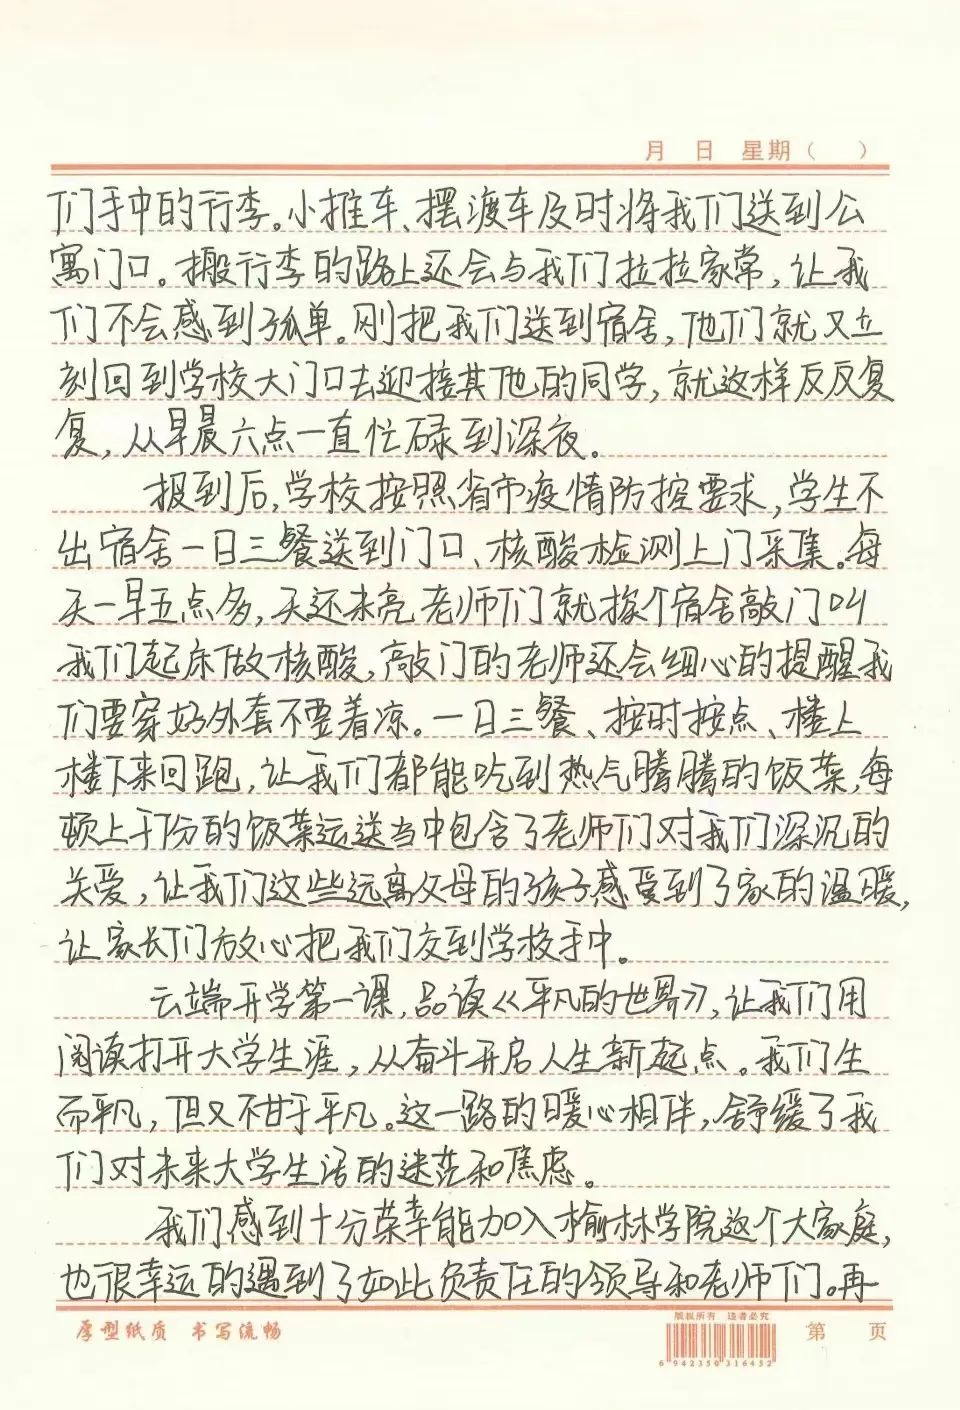 月 日 星期（ ）
们手中的行李。小推车、摆渡车及时将我们送到公
寓门口。搬行李的路上还会与我们拉拉家常，让我
们不会感到孤单。刚把我们送到宿舍，他们就又立
刻回到学校大门口去迎接其他的同学，就这样反反复
复，从早晨六点一直忙碌到深夜。
报到后，学校按照省市疫情防控要求，学生不
出宿舍一日三餐送到门口、核酸检测上门采集。每
天一早五点多，天还未亮老师们就挨个宿舍敲门叫
我们起床做核酸，敲门的老师还会细心的提醒我
们要穿好外套不要着凉。一日三餐、按时按点、楼上
楼下来回跑，让我们都能吃到热气腾腾的饭菜，每
顿上千份的饭菜运送当中包含了老师们对我们深沉的
关爱，让我们这些远离父母的孩子感受到了家的温暖，
让家长们放心把我们交到学校手中。
云端开学第一课，品读《平凡的世界》，让我们用
阅读打开大学生涯，从奋斗开启人生新起点。我们生
而平凡，但又不甘于平凡。这一路的暖心相伴，舒缓了我
们对未来大学生活的迷茫和焦虑。
我们感到十分荣幸能加入榆林学院这个大家庭，
也很幸运的遇到了如此负责任的领导和老师们。再
厚型纸质 书写流畅
版权所有 违者必究
6 942350 316452
第 页